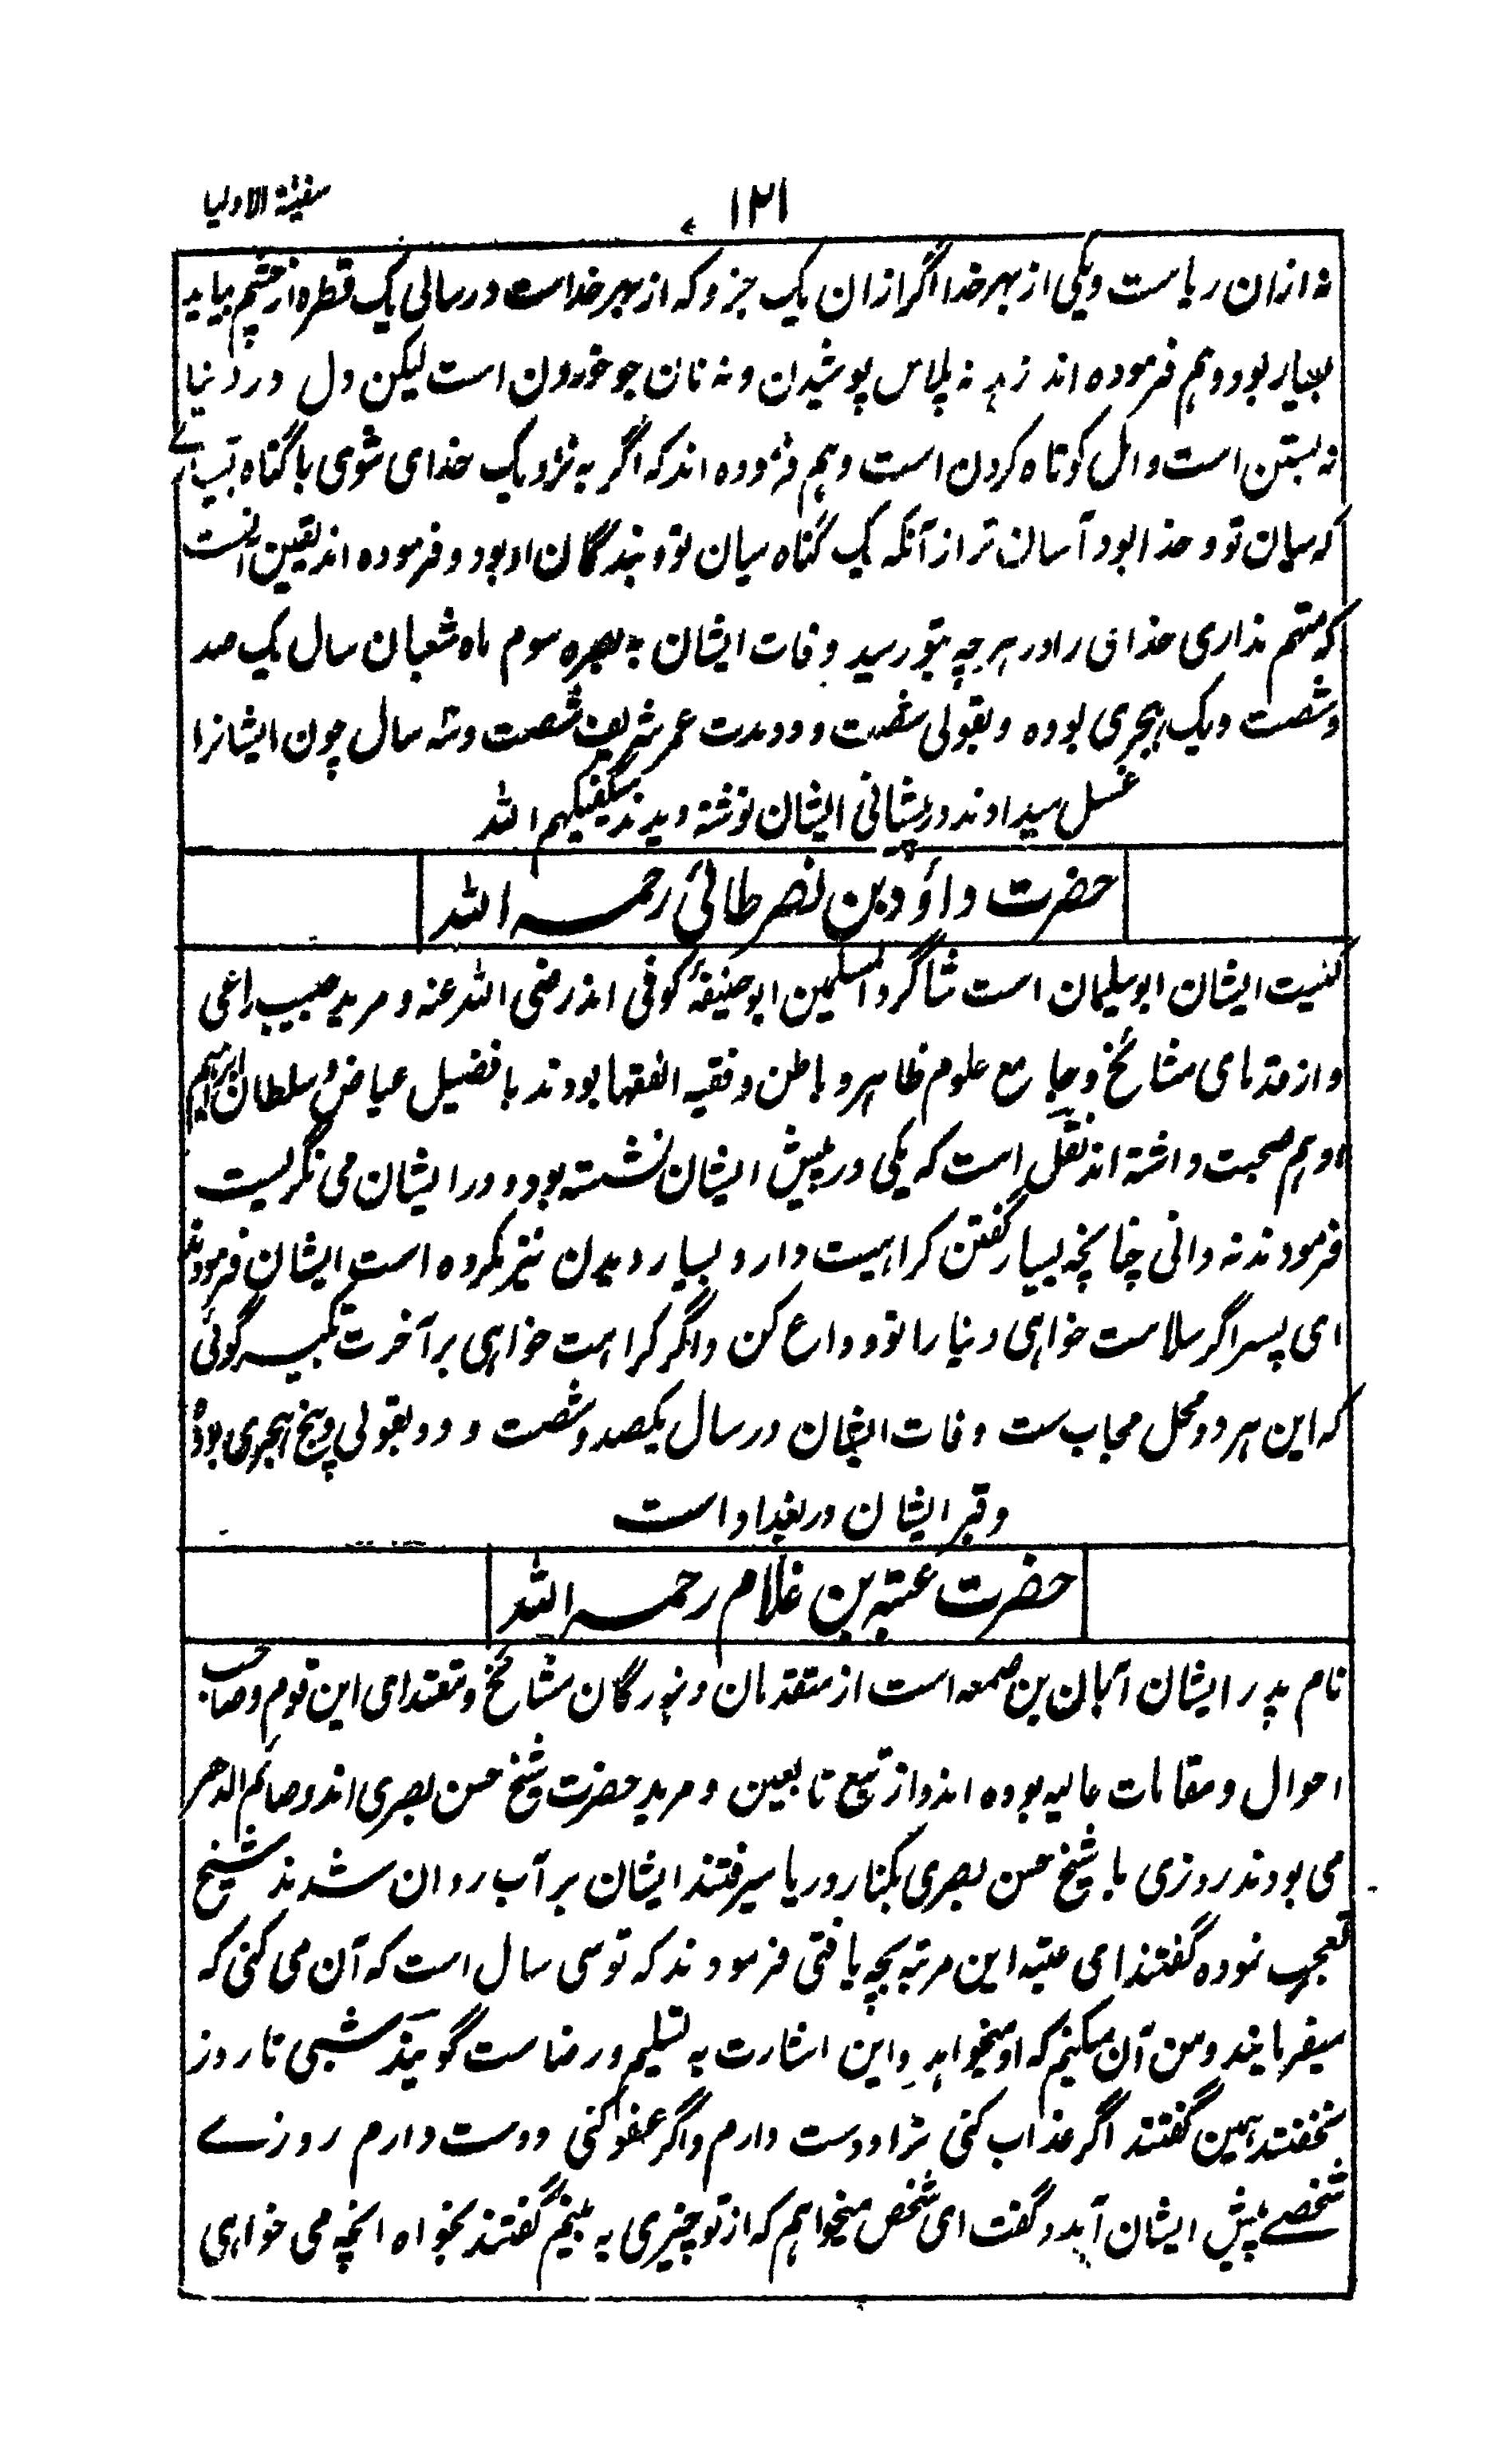 ۱۲۱
سفینة الاولیا
نه ازان ریاست و یکی از بهر خدا اگر ازان یک جزو که از بهر خداست در سالی یک قطره از چشم بیاید
بسیار بود و هم فرموده اند زهد نه پلاس پوشیدن و نه نان جو خوردن است لیکن دل در دنیا
نه بستن است و امل کوتاه کردن است و هم فرموده اند که اگر به نزدیک خدای شوی با گناه بسیارے
که میان تو و خدا بود آسان تر از آنکه یک گناه میان تو و بندگان او بود و فرموده اند یقین آنست
که متهم نداری خدای را در هرچه بتو رسید وفات ایشان به بصره سوم ماه شعبان سال یک صد
و شصت و یک هجری بوده و بقولی شصت و دو مدت عمر شریف شصت و سه سال چون ایشانرا
غسل میدادند در پیشانی ایشان نوشته دیدند سیکفیکهم الله
حضرت داؤد بن نصر طائی رحمه الله
کنیت ایشان ابو سلیمان است شاگرد المسلمین ابو حنیفۀ کوفی اند رضی الله عنه و مرید حبیب راعی
و از قدمای مشائخ و جامع علوم ظاهر و باطن و فقیه الفقها بودند با فضیل عیاض و سلطان ابراهیم
ادهم صحبت داشته اند نقل است که یکی در پیش ایشان نشسته بود و در ایشان می نگریست
فرمودند نه دانی چنانچه بسیار گفتن کراهیت دارد بسیار دیدن نیز مکروه است ایشان فرمودند
ای پسر اگر سلامت خواهی دنیا را تو وداع کن و اگر کرامت خواهی بر آخرت تکبیر گوئی
که این هر دو محل حجاب ست وفات ایشان در سال یکصد و شصت و دو بقولی و پنج هجری بوده
و قبر ایشان در بغداد است
حضرت عتبه بن غلام رحمه الله
نام پدر ایشان آبان بن صمعه است از متقدمان و بزرگان مشائخ و مقتدای این قوم و صاحب
احوال و مقامات عالیه بوده اند و از تبع تابعین و مرید حضرت شیخ حسن بصری اند و صائم الدهر
می بودند روزی با شیخ حسن بصری بکنار دریا میرفتند ایشان بر آب روان شدند شیخ
تعجب نموده گفتند ای عتبه این مرتبه بچه یافتی فرمودند که تو سی سال است که آن می کنی که
میفرمایند و من آن میکنم که او میخواهد و این اشارت به تسلیم و رضا ست گویند شبی تا روز
نخفتند همین گفتند اگر عذاب کنی ترا دوست دارم و اگر عفو کنی دوست دارم روزے
شخصے پیش ایشان آمد و گفت ای شخص میخواهم که از تو چیزی به بینم گفتند بخواه انچه می خواهی